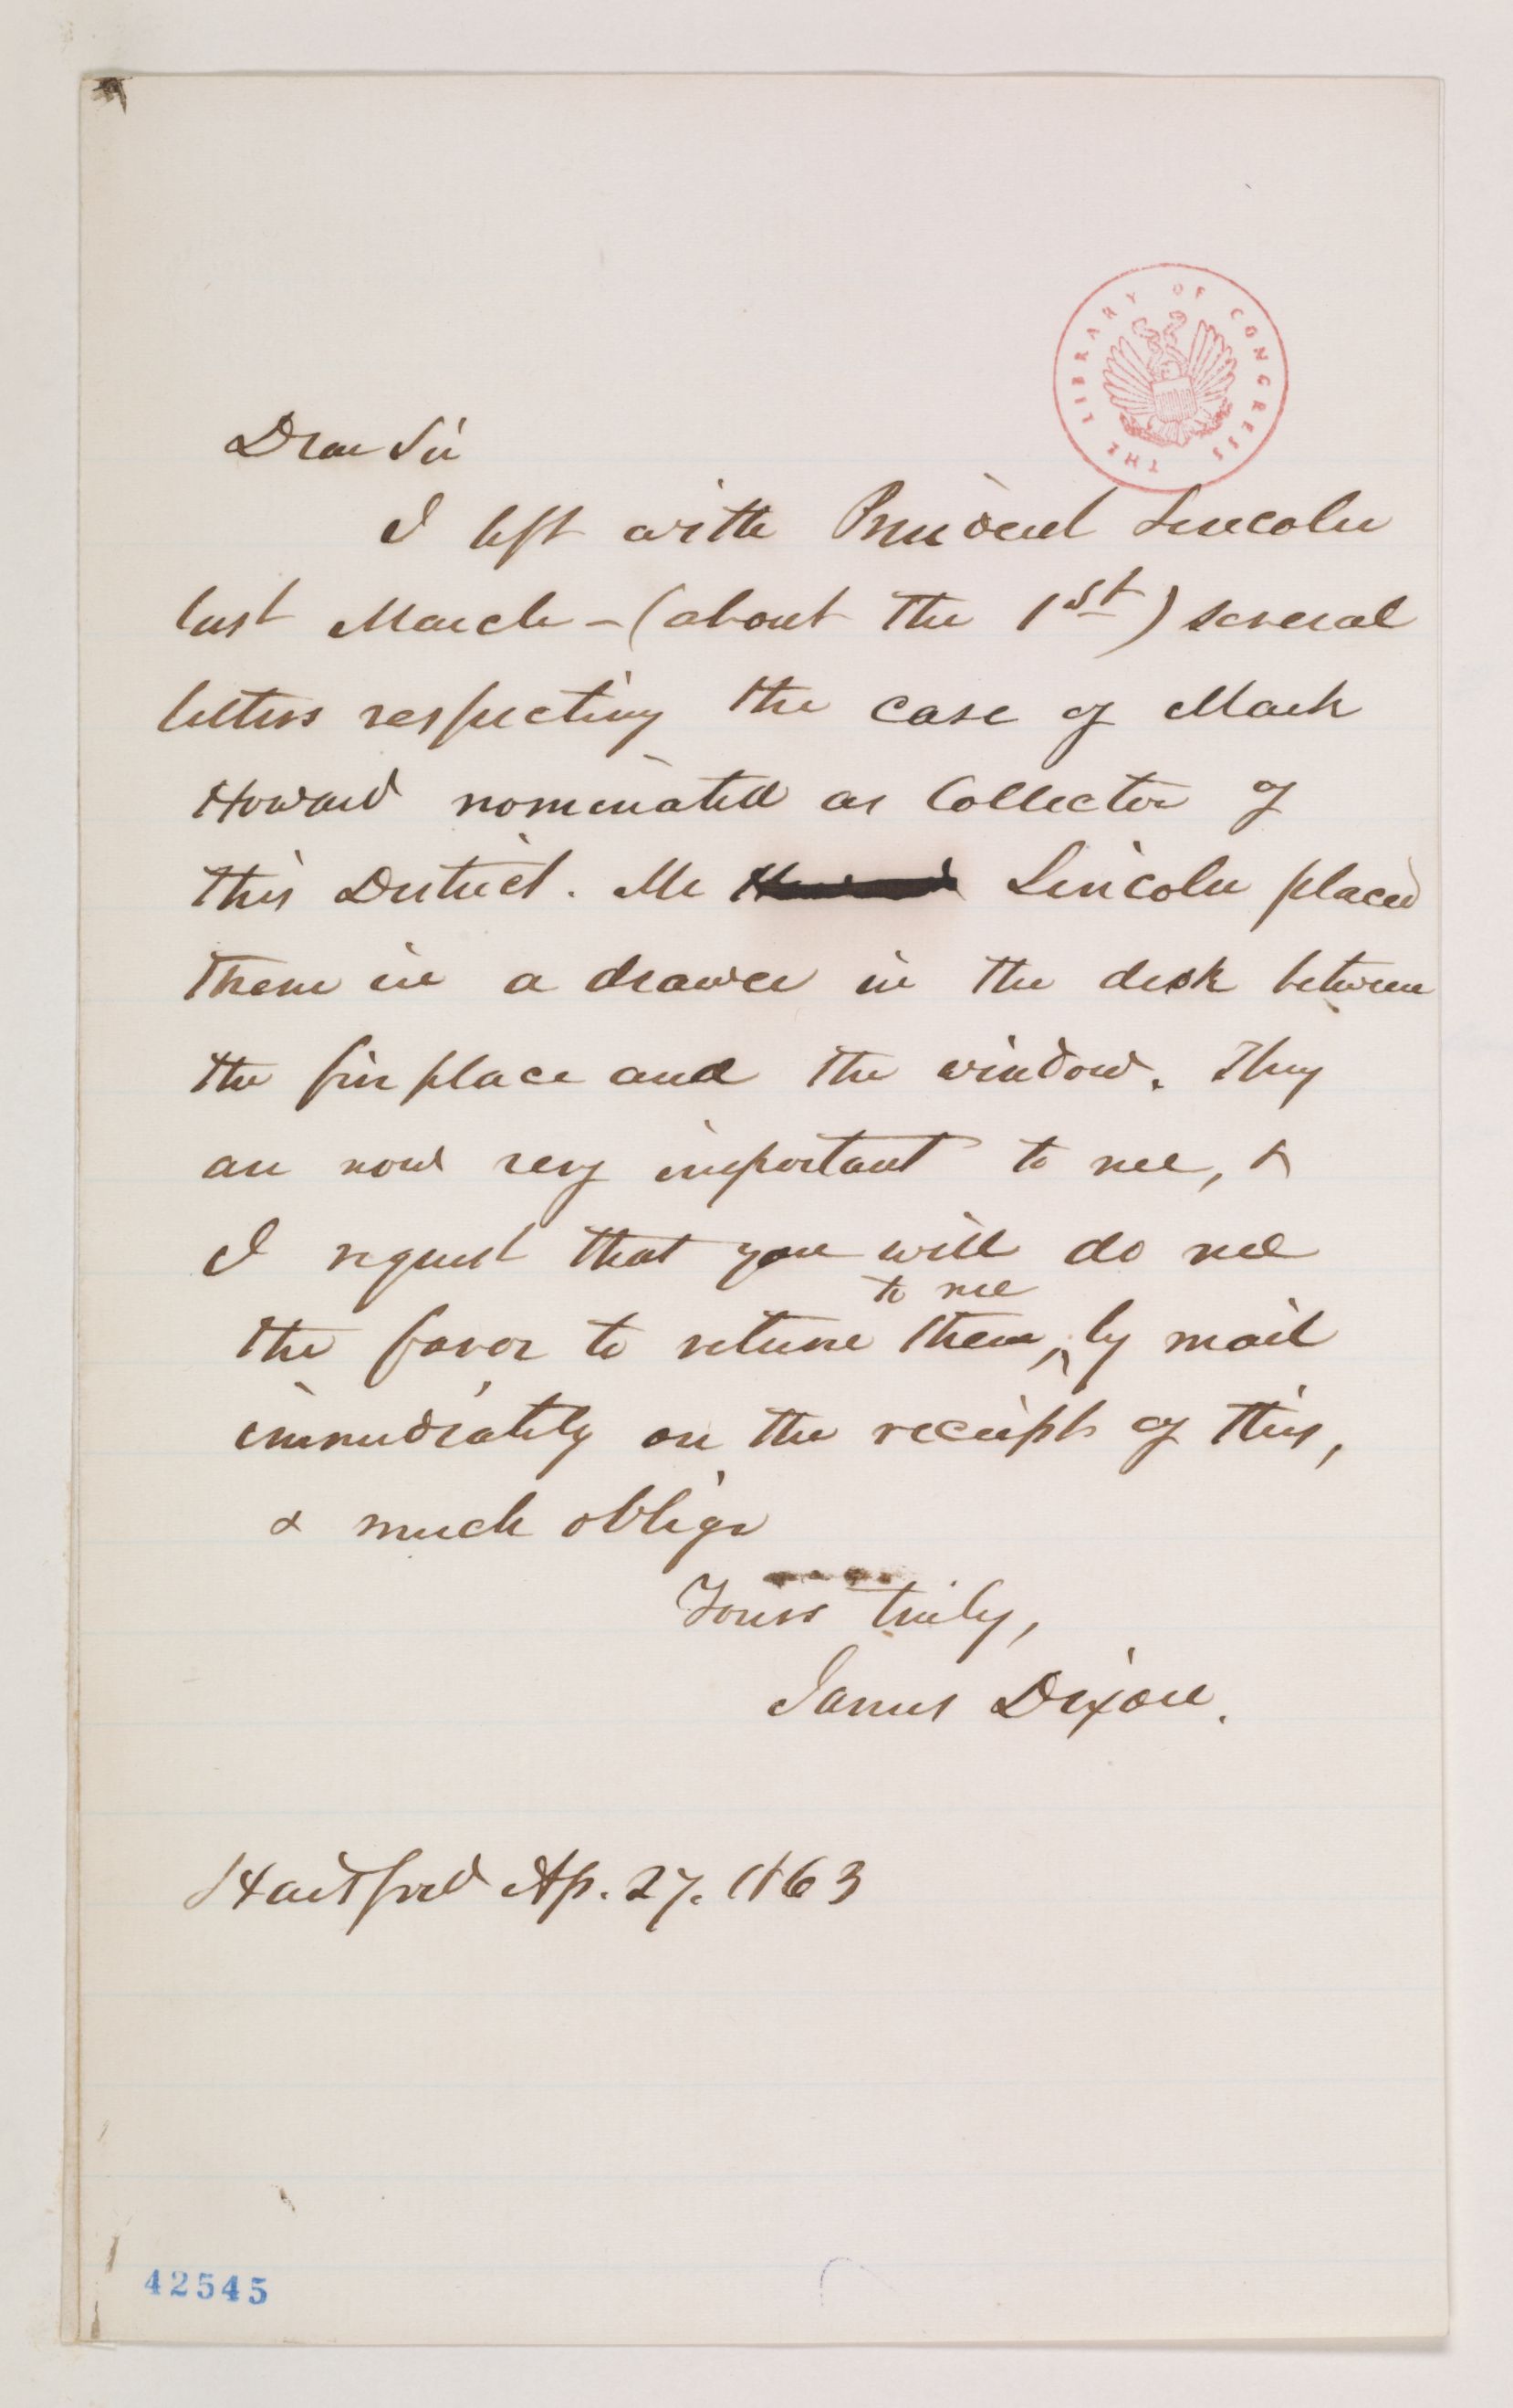 THE LIBRARY OF CONGRESS
Dear Sir
I left with President Lincoln
last March - (about the 1st) several
letters respecting the case of Mark
Howard nominated as Collector of
this District. Mr Lincoln placed
them in a drawer in the desk between
the fire place and the window. They
are now very important to me, &
I request that you will do me
to me
the favor to return them, by mail
immediately on the receipt of this,
& much oblige
Yours truly,
James Dixon.
Hartford Ap. 27. 1863
42545